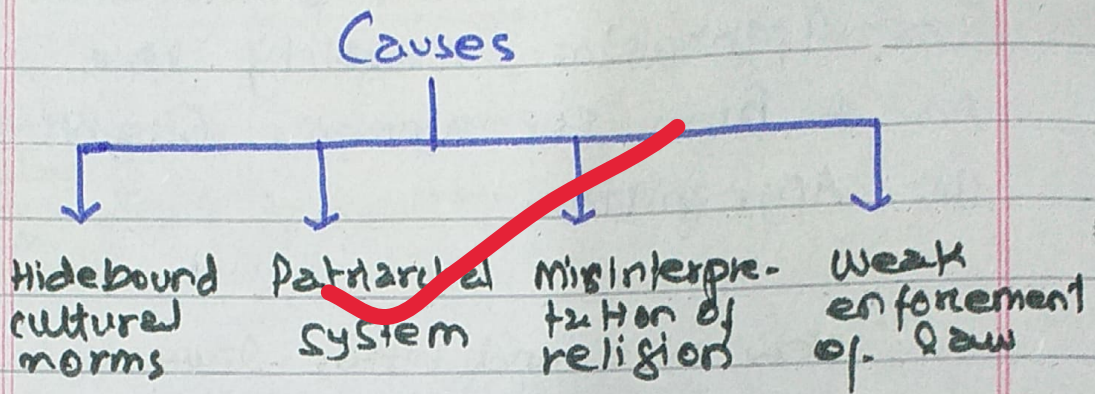 Causes
Hidebound
cultural
norms
Patriarchal
system
Misinterpre-
tation of
religion
Weak
enforcement
of law